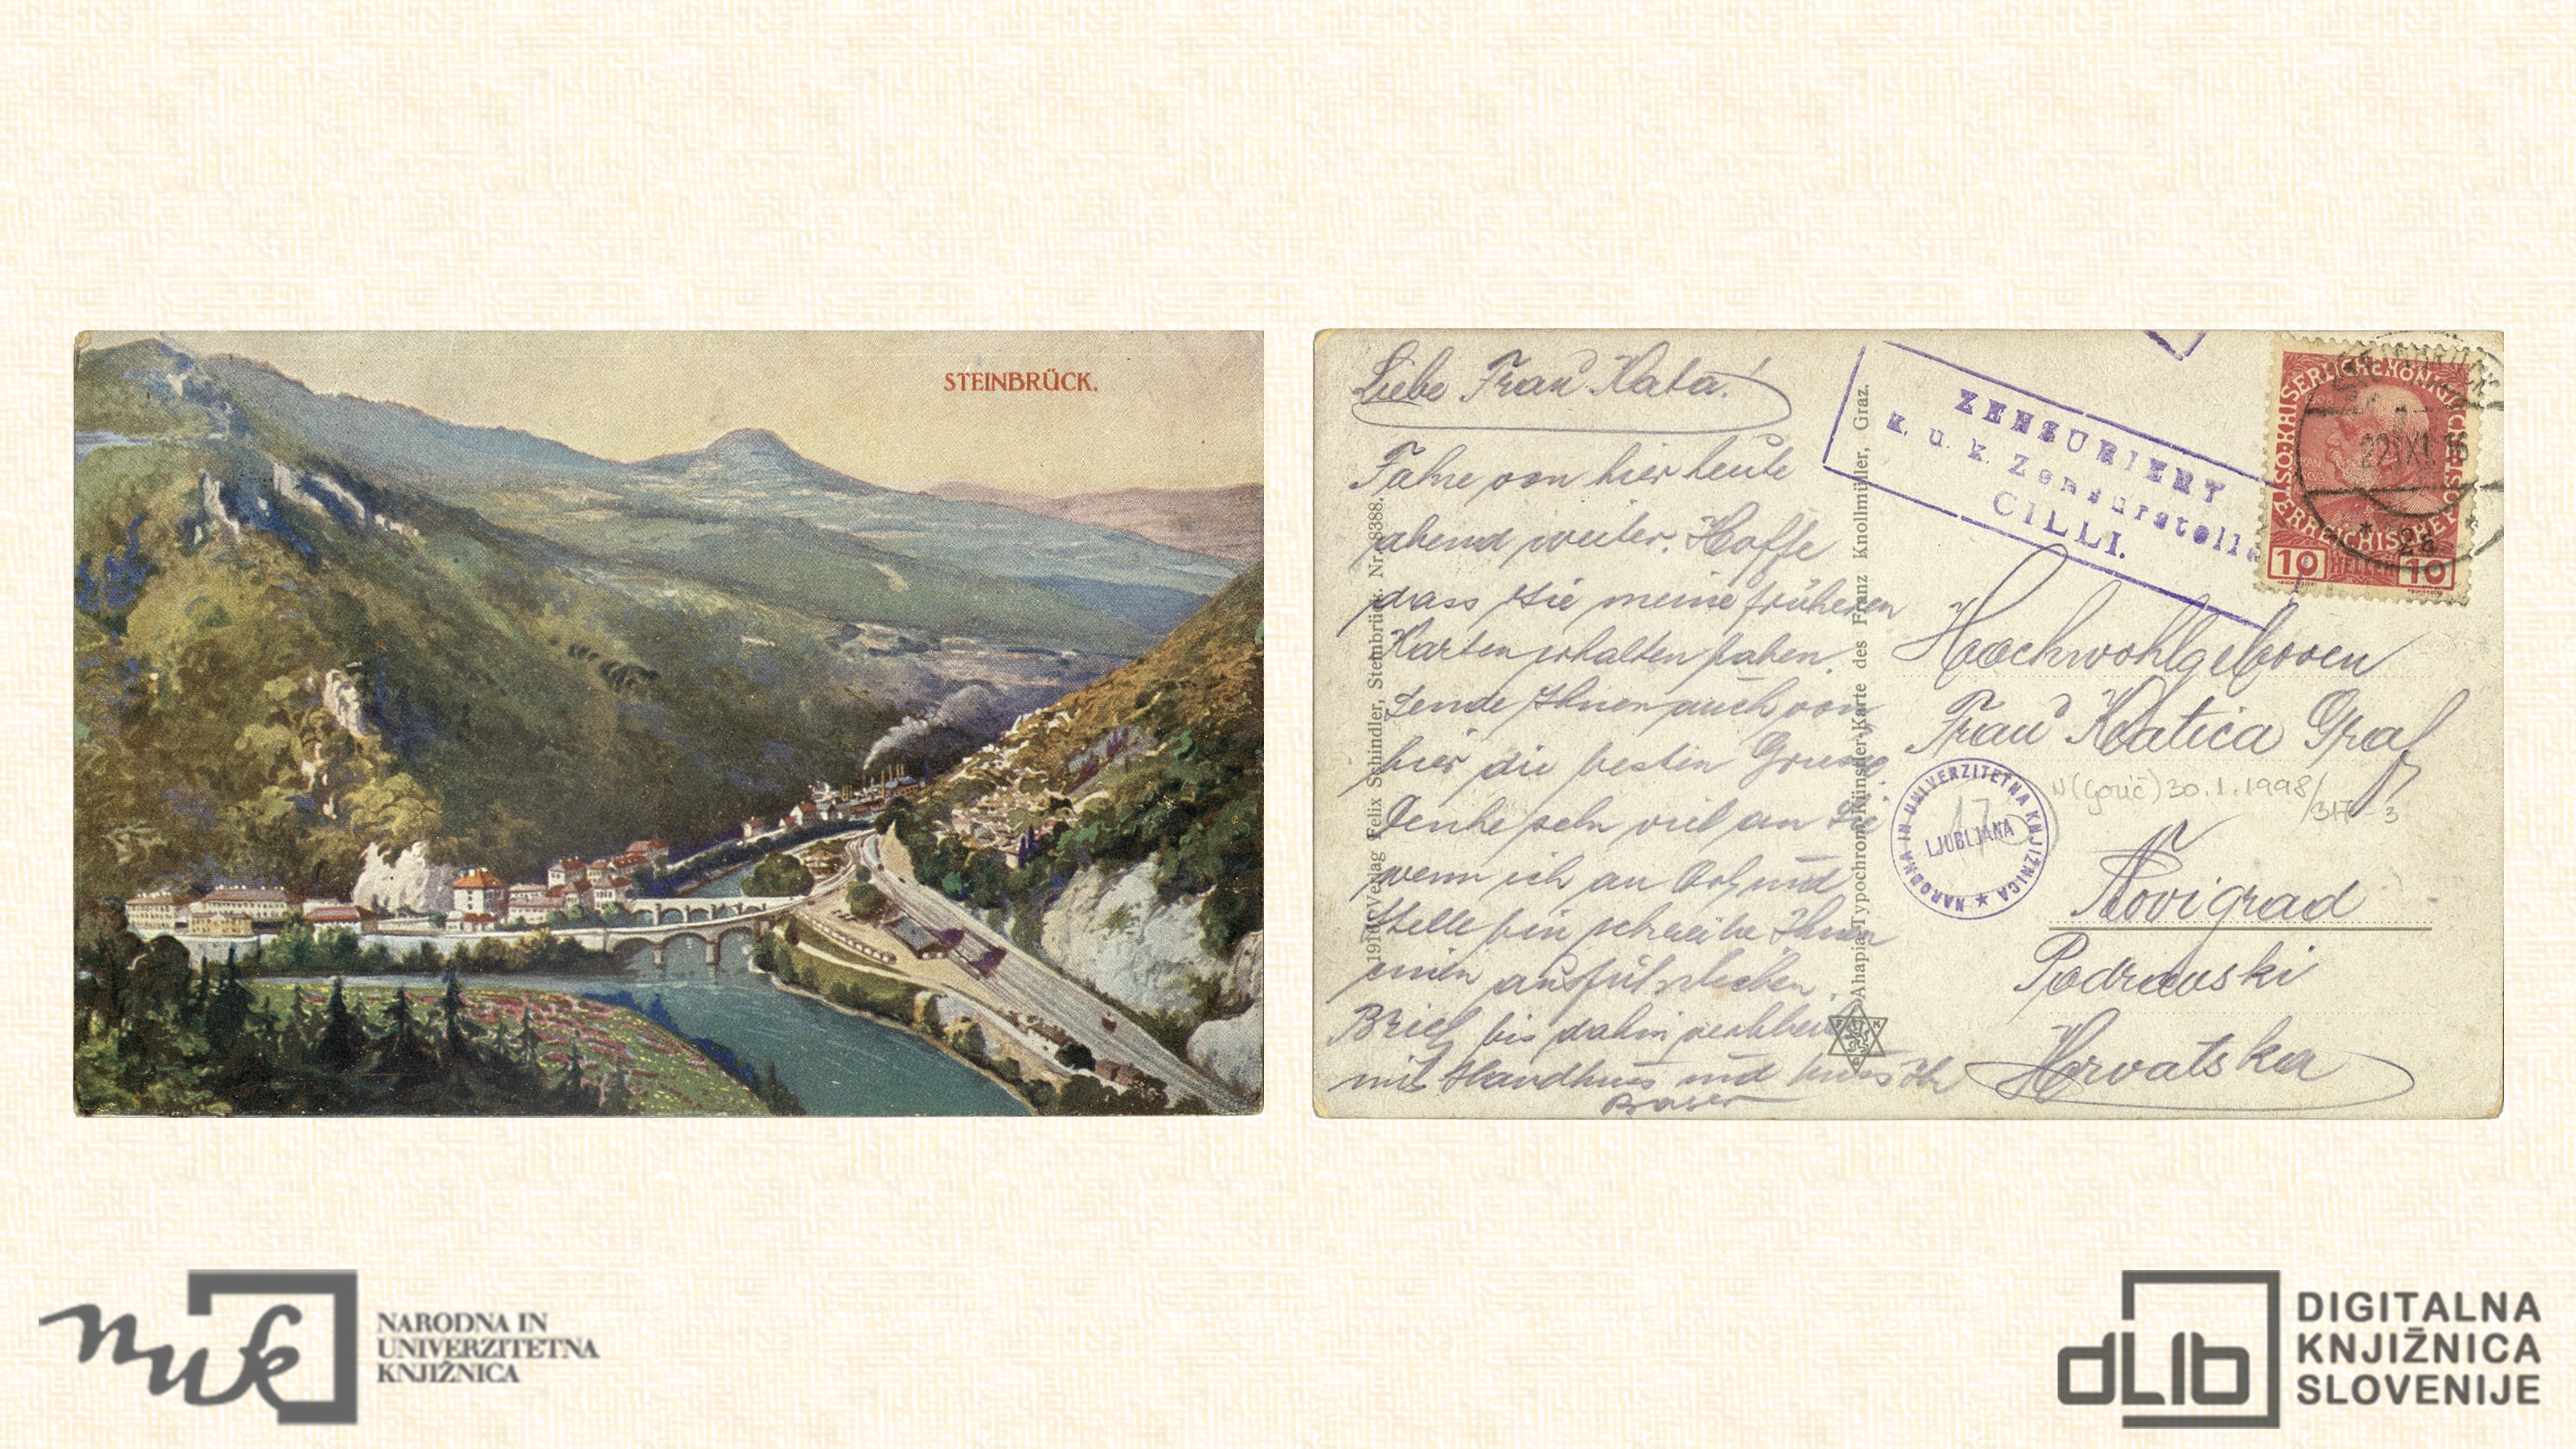 STEINBRÜCK.
Liebe Frau Kata!
Fahre von hier heute
abend weiter. Hoffe
dass Sie meine früheren
Karten erhalten haben.
Sende Ihnen auch von
hier die besten Grüsse.
Denke sehr viel an Sie
wenn ich an Ort und
Stelle bin schreibe Ihnen
einen ausführlichen
Brief bis dahin verbleibe
mit Handkuss und
Verlag Felix Schindler, Steinbrück. Nr. 8388.
Ahapia-Typochrom-Künstler-Karte des Franz Knollmüller, Graz.
ZENSURIERT
K. u. K. Zensurstelle
CILLI.
KAISERLICHE KÖNIGLICHE
ÖSTERREICHISCHE
10 HELLER 10
22. XI. 15
2a
Hochwohlgeboren
Frau Katica Graf
NARODNA IN UNIVERZITETNA KNJIŽNICA ★
LJUBLJANA
30.1.1998/
Novigrad
Podravski
Hrvatska
nuk
NARODNA IN
UNIVERZITETNA
KNJIŽNICA
dLib
DIGITALNA
KNJIŽNICA
SLOVENIJE